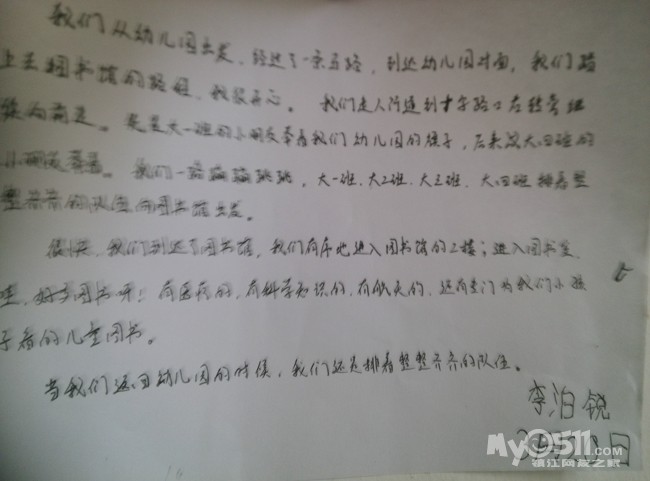 我们从幼儿园出发,经过了一条马路,到达幼儿园对面,我们踏
上去图书馆的路程,我很开心。我们走人行道到十字路口右转弯继
续向前走。先是大一班的小朋友拿着我们幼儿园的旗子,后来改大四班的
小朋友拿着。我们一路蹦蹦跳跳,大一班、大二班、大三班、大四班排着整
整齐齐的队伍向图书馆出发。
很快,我们到达了图书馆,我们有序地进入图书馆的二楼;进入图书室,
哇,好多图书呀!有医疗的,有科学知识的,有航天的,还有专门为我们小孩
子看的儿童图书。
当我们返回幼儿园的时候,我们还是排着整整齐齐的队伍。
李泊锐
3月 日
My0511.com
镇江网友之家